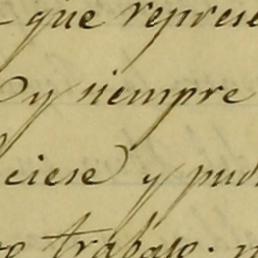 que represe
y siempre
ciese y pud
trabajo.